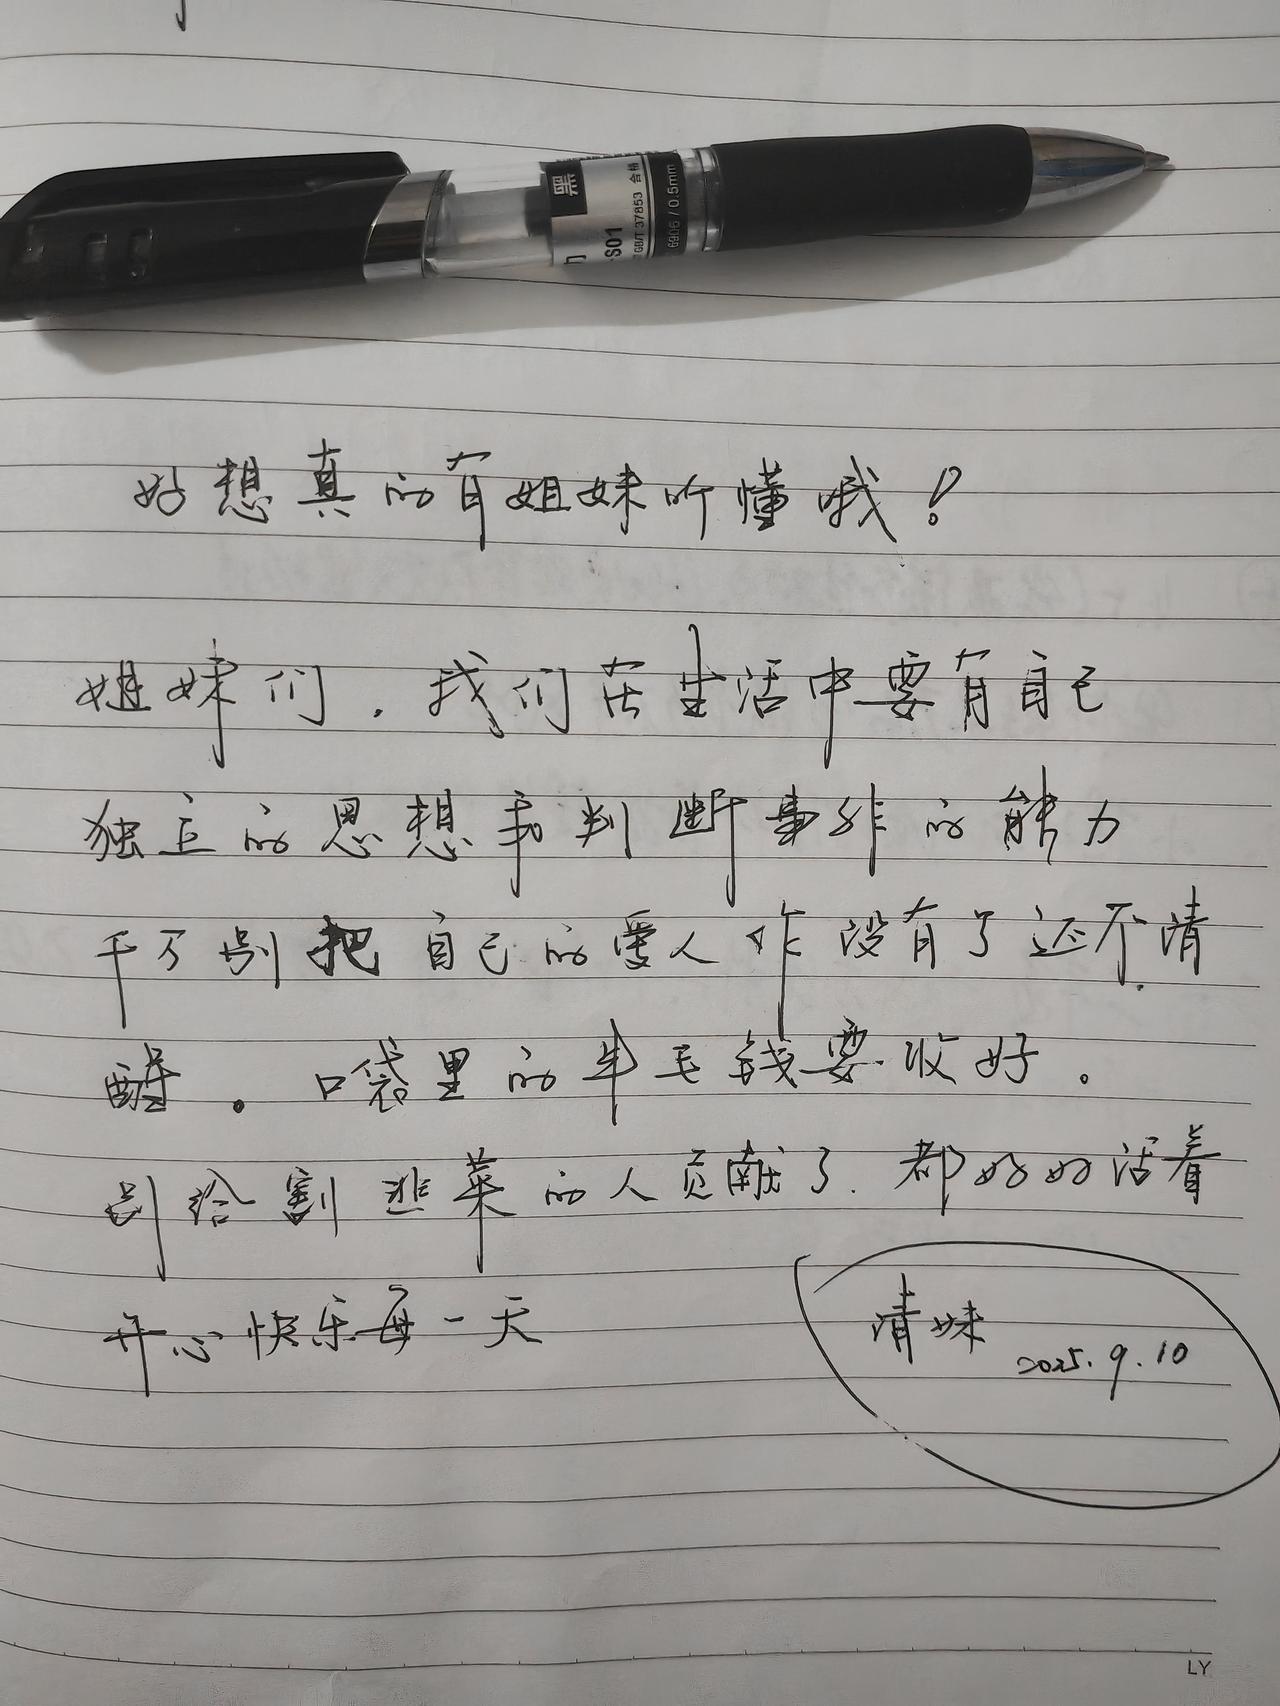 黑
S01
GB/T 37853 合格
6906 / 0.5mm
好想真的有姐妹听懂哦!
姐妹们，我们在生活中要有自己
独立的思想和判断事非的能力
千万别把自己的爱人作没有了还不清
醒。口袋里的半毛钱要收好.
别给割韭菜的人贡献了.都好好活着
开心快乐每一天
清妹
2025.9.10
LY